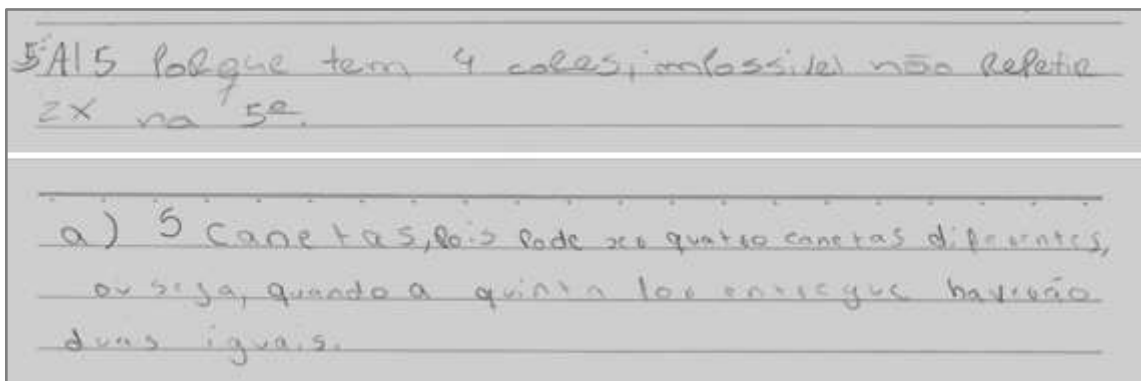 5 A) 5 Porque tem 4 cores, impossivel não Repetir
2x na 5ª.
a) 5 canetas, pois pode ser quatro canetas diferentes,
ou seja, quando a quinta for entregue haverão
duas iguais.